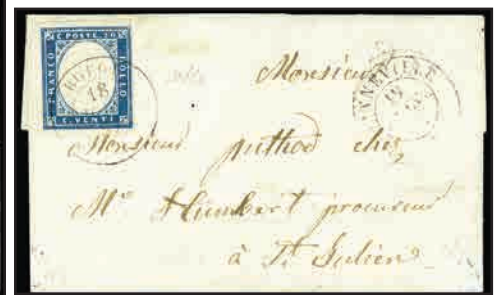 C. POSTE 20
FRANCO
BOLLO
C. VENTI
18
Monsieur
Monsieur puthod chez
Mr Humbert procureur
à St Julien